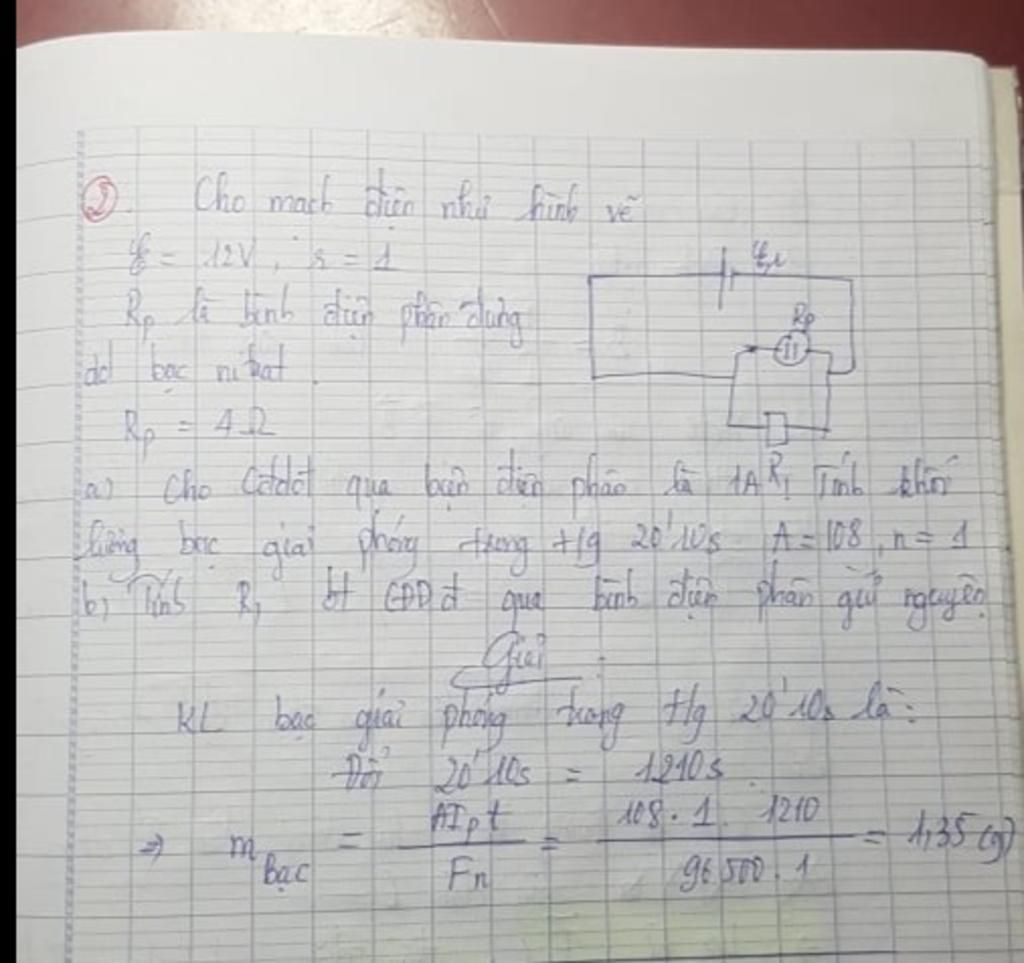 ② Cho mạch điện như hình vẽ
ξ = 12V ; r = 1
ξ,r
Rp là bình điện phân dung
Rp
dd bạc nitrat.
Rp = 4Ω
R1
a) Cho Cđdđ qua bình điện phân là 1A Tính khối
lượng bạc giải phóng trong t/g 20'10s A = 108, n = 1
b) Tính R1 bt CĐDđ qua bình điện phân giữ nguyên
Giải
KL bạc giải phóng trong t/g 20'10s là:
Đổi 20'10s = 1210s.
⇒ mBạc = AIpt / Fn = 108 . 1 . 1210 / 96 500 . 1 = 1,35 (g)